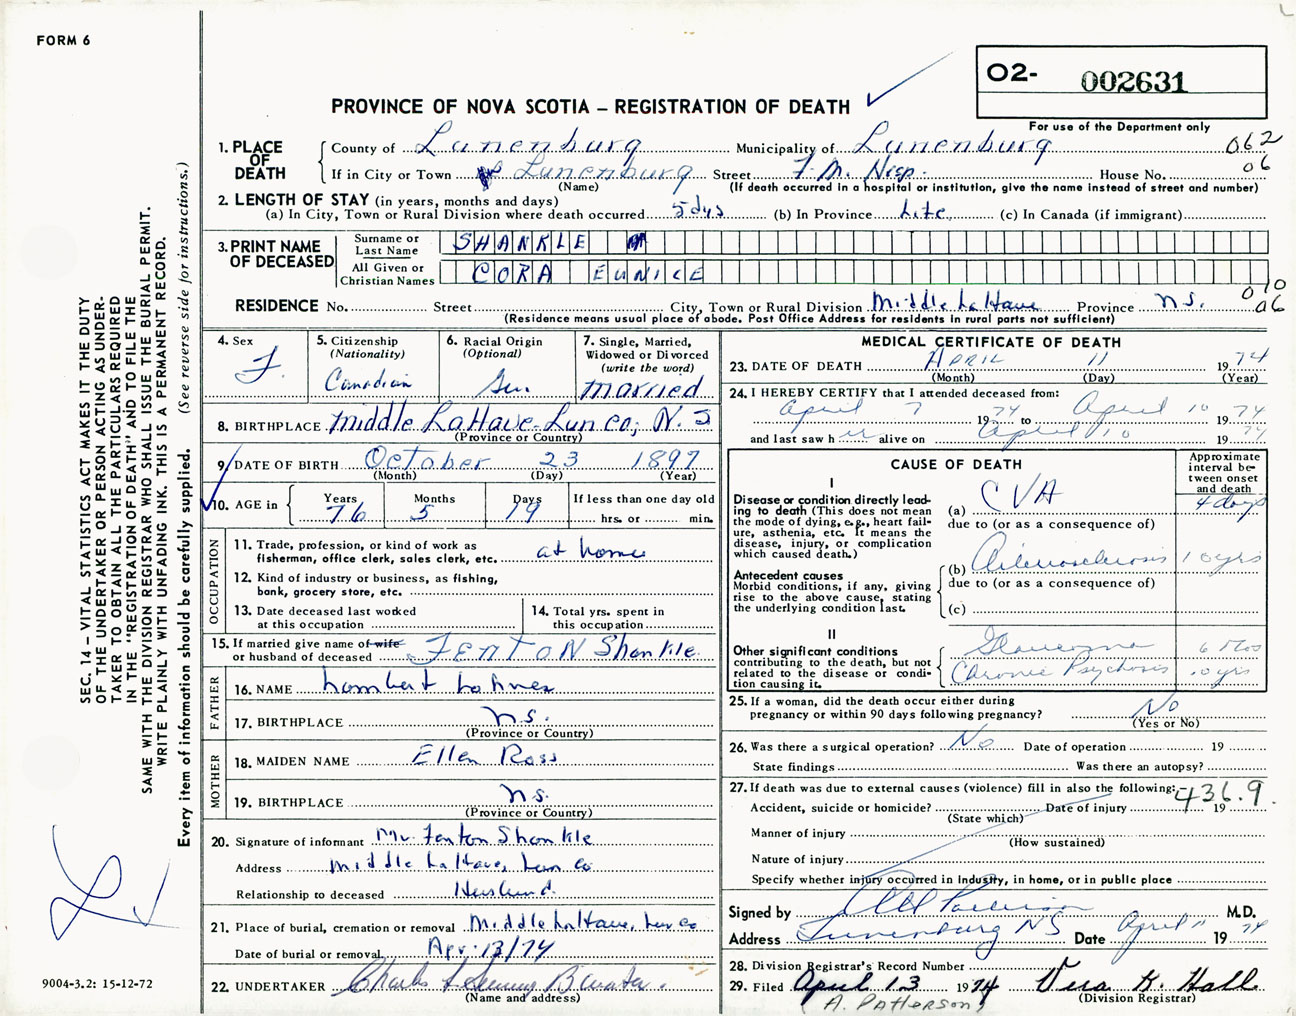 FORM 6
O2- 002631
PROVINCE OF NOVA SCOTIA – REGISTRATION OF DEATH
For use of the Department only
1. PLACE OF DEATH
County of Lunenburg Municipality of Lunenburg 062
If in City or Town Lunenburg Street F. M. Hosp. House No. 06
(Name) (If death occurred in a hospital or institution, give the name instead of street and number)
2. LENGTH OF STAY (in years, months and days)
(a) In City, Town or Rural Division where death occurred 5 dys (b) In Province Life (c) In Canada (if immigrant)
3. PRINT NAME OF DECEASED
Surname or Last Name SHANKLE
All Given or Christian Names CORA EUNICE
010
RESIDENCE No. Street City, Town or Rural Division Middle LaHave Province N.S. 06
(Residence means usual place of abode. Post Office Address for residents in rural parts not sufficient)
4. Sex F.
5. Citizenship (Nationality) Canadian
6. Racial Origin (Optional) Ger.
7. Single, Married, Widowed or Divorced (write the word) married
8. BIRTHPLACE Middle LaHave Lun Co, N. S
(Province or Country)
9. DATE OF BIRTH October 23 1897
(Month) (Day) (Year)
10. AGE in Years 76 Months 5 Days 19 If less than one day old
hrs. or min.
OCCUPATION
11. Trade, profession, or kind of work as fisherman, office clerk, sales clerk, etc. at home
12. Kind of industry or business, as fishing, bank, grocery store, etc.
13. Date deceased last worked at this occupation
14. Total yrs. spent in this occupation
15. If married give name of wife or husband of deceased FENTON Shankle
FATHER
16. NAME Lambert Lohnes
17. BIRTHPLACE N.S.
(Province or Country)
MOTHER
18. MAIDEN NAME Ellen Ross
19. BIRTHPLACE N.S.
(Province or Country)
20. Signature of informant Mr. Fenton Shankle
Address Middle LaHave, Lun Co
Relationship to deceased Husband.
21. Place of burial, cremation or removal Middle LaHave, Lun Co
Date of burial or removal Apr. 13/74
22. UNDERTAKER Charles
(Name and address)
MEDICAL CERTIFICATE OF DEATH
23. DATE OF DEATH APRIL 11 1974
(Month) (Day) (Year)
24. I HEREBY CERTIFY that I attended deceased from:
April 7 1974 to April 10 1974
and last saw her alive on April 10 1974
CAUSE OF DEATH
Approximate interval between onset and death
I
Disease or condition directly leading to death (This does not mean the mode of dying, e.g., heart failure, asthenia, etc. It means the disease, injury, or complication which caused death.)
(a) CVA 4 days
due to (or as a consequence of)
Antecedent causes
Morbid conditions, if any, giving rise to the above cause, stating the underlying condition last.
(b) Arteriosclerosis 10 yrs
due to (or as a consequence of)
(c)
II
Other significant conditions contributing to the death, but not related to the disease or condition causing it.
Glaucoma 6 mos
Chronic Psychosis 10 yrs
25. If a woman, did the death occur either during pregnancy or within 90 days following pregnancy? No
(Yes or No)
26. Was there a surgical operation? No Date of operation 19
State findings Was there an autopsy?
27. If death was due to external causes (violence) fill in also the following: 436.9
Accident, suicide or homicide? Date of injury 19
(State which)
Manner of injury
(How sustained)
Nature of injury
Specify whether injury occurred in Industry, in home, or in public place
Signed by M.D.
Address Lunenburg NS Date April 11 1974
28. Division Registrar's Record Number
29. Filed April 13 1974 Vera K. Hall
(A. PATTERSON) (Division Registrar)
SEC. 14 – VITAL STATISTICS ACT MAKES IT THE DUTY
OF THE UNDERTAKER OR PERSON ACTING AS UNDER-
TAKER TO OBTAIN ALL THE PARTICULARS REQUIRED
IN THE "REGISTRATION OF DEATH" AND TO FILE THE
SAME WITH THE DIVISION REGISTRAR WHO SHALL ISSUE THE BURIAL PERMIT.
WRITE PLAINLY WITH UNFADING INK. THIS IS A PERMANENT RECORD.
Every item of information should be carefully supplied. (See reverse side for instructions.)
9004-3.2: 15-12-72